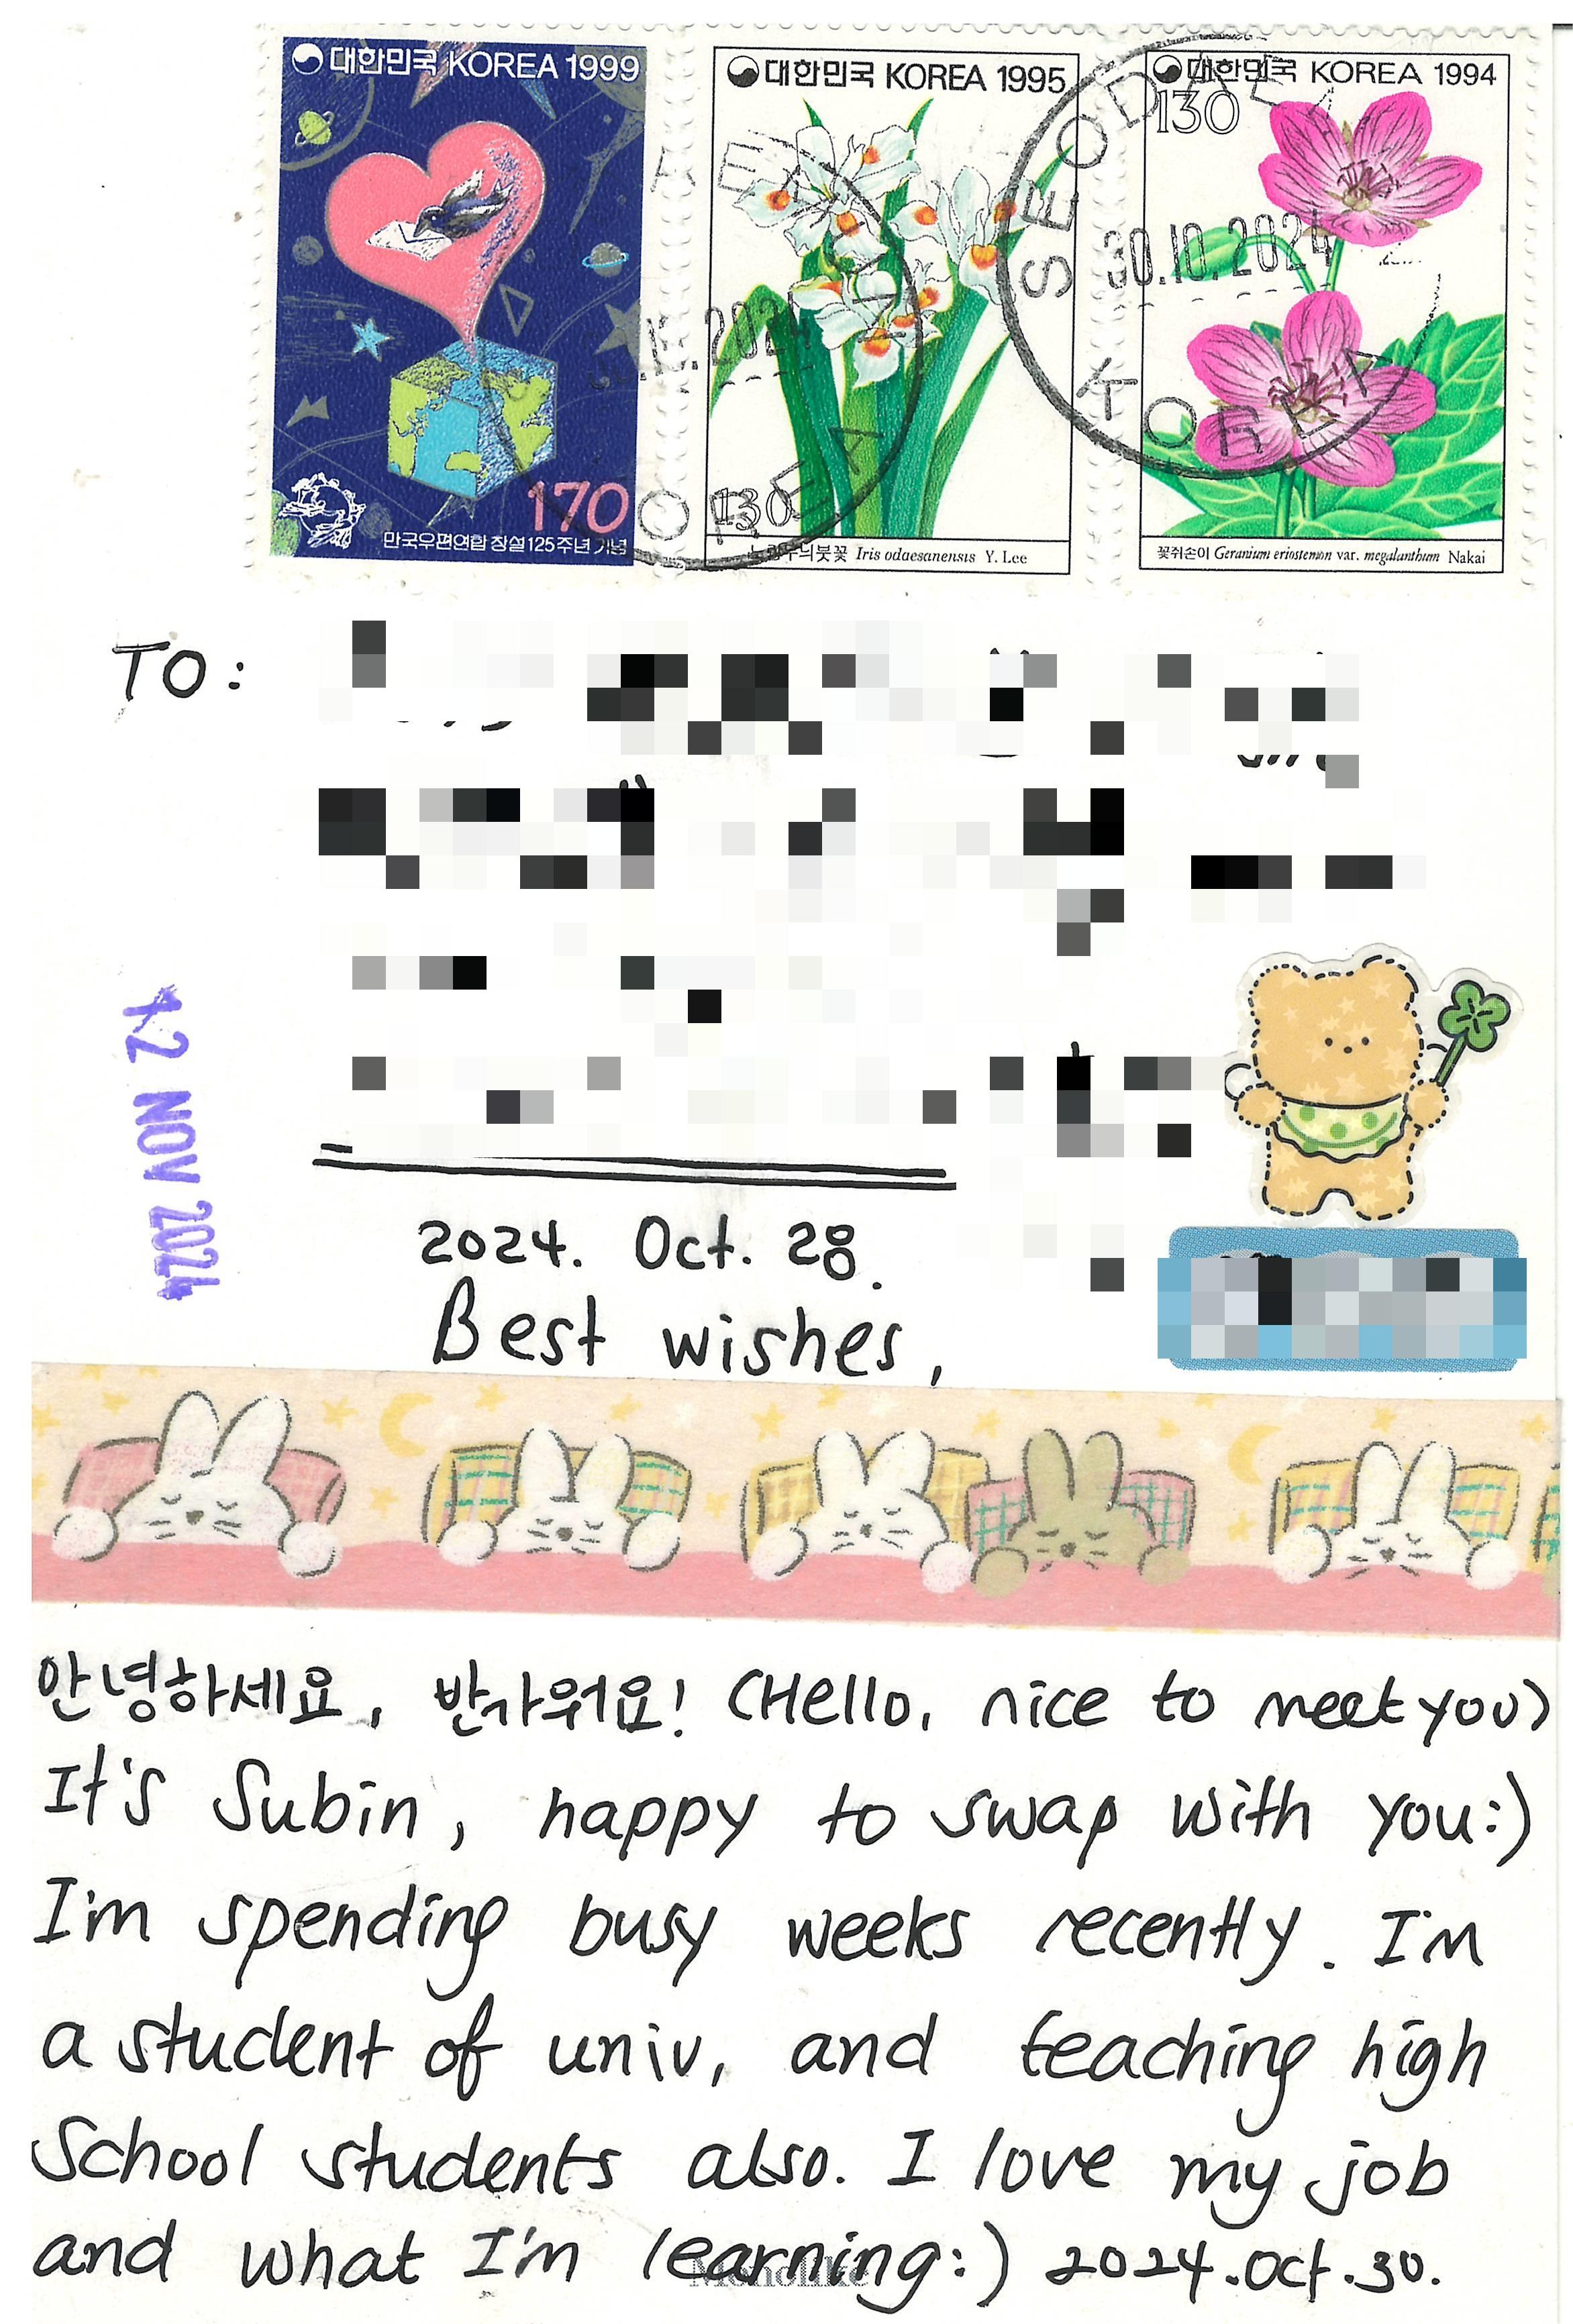 대한민국 KOREA 1999
170
만국우편연합 창설 125주년 기념
대한민국 KOREA 1995
130
노랑무늬붓꽃 Iris odaesanensis Y. Lee
대한민국 KOREA 1994
130
꽃쥐손이 Geranium eriostemon var. megalanthum Nakai
30.10.2024
KOREA
TO:
12 NOV 2024
2024. Oct. 28.
Best wishes,
안녕하세요, 반가워요! (Hello, nice to meet you)
It's Subin, happy to swap with you:)
I'm spending busy weeks recently. I'm
a student of univ, and teaching high
School students also. I love my job
and what I'm learning:) 2024.Oct.30.